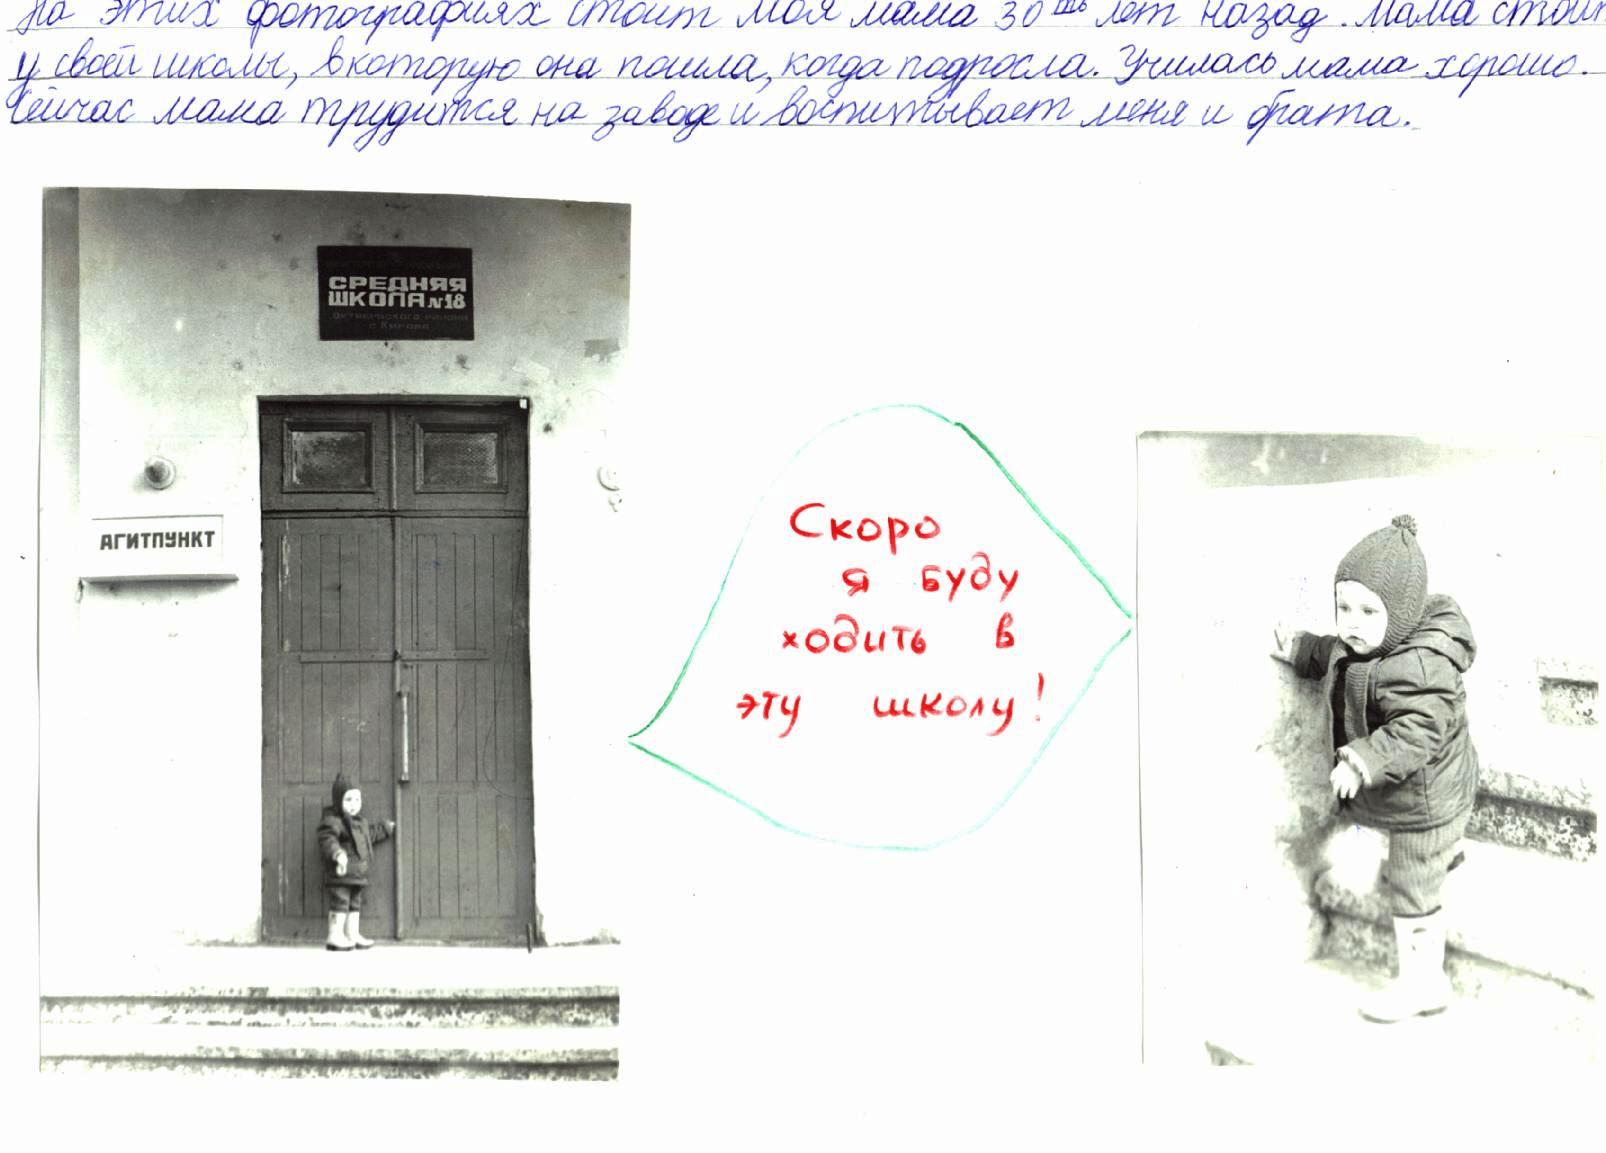 На этих фотографиях стоит моя мама 30ть лет назад. Мама стоит
у своей школы, в которую она пошла, когда подросла. Училась мама хорошо.
Сейчас мама трудится на заводе и воспитывает меня и брата.
СРЕДНЯЯ
ШКОЛА №18
ОКТЯБРЬСКОГО РАЙОНА
г. КИРОВА
АГИТПУНКТ
Скоро
я буду
ходить в
эту школу!